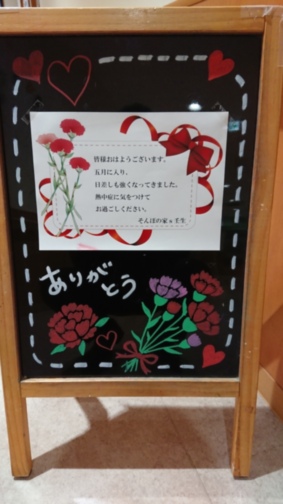 皆様おはようございます。
五月に入り、
日差しも強くなってきました。
熱中症に気をつけて
お過ごしください。
そんぽの家s王生
ありが
とう